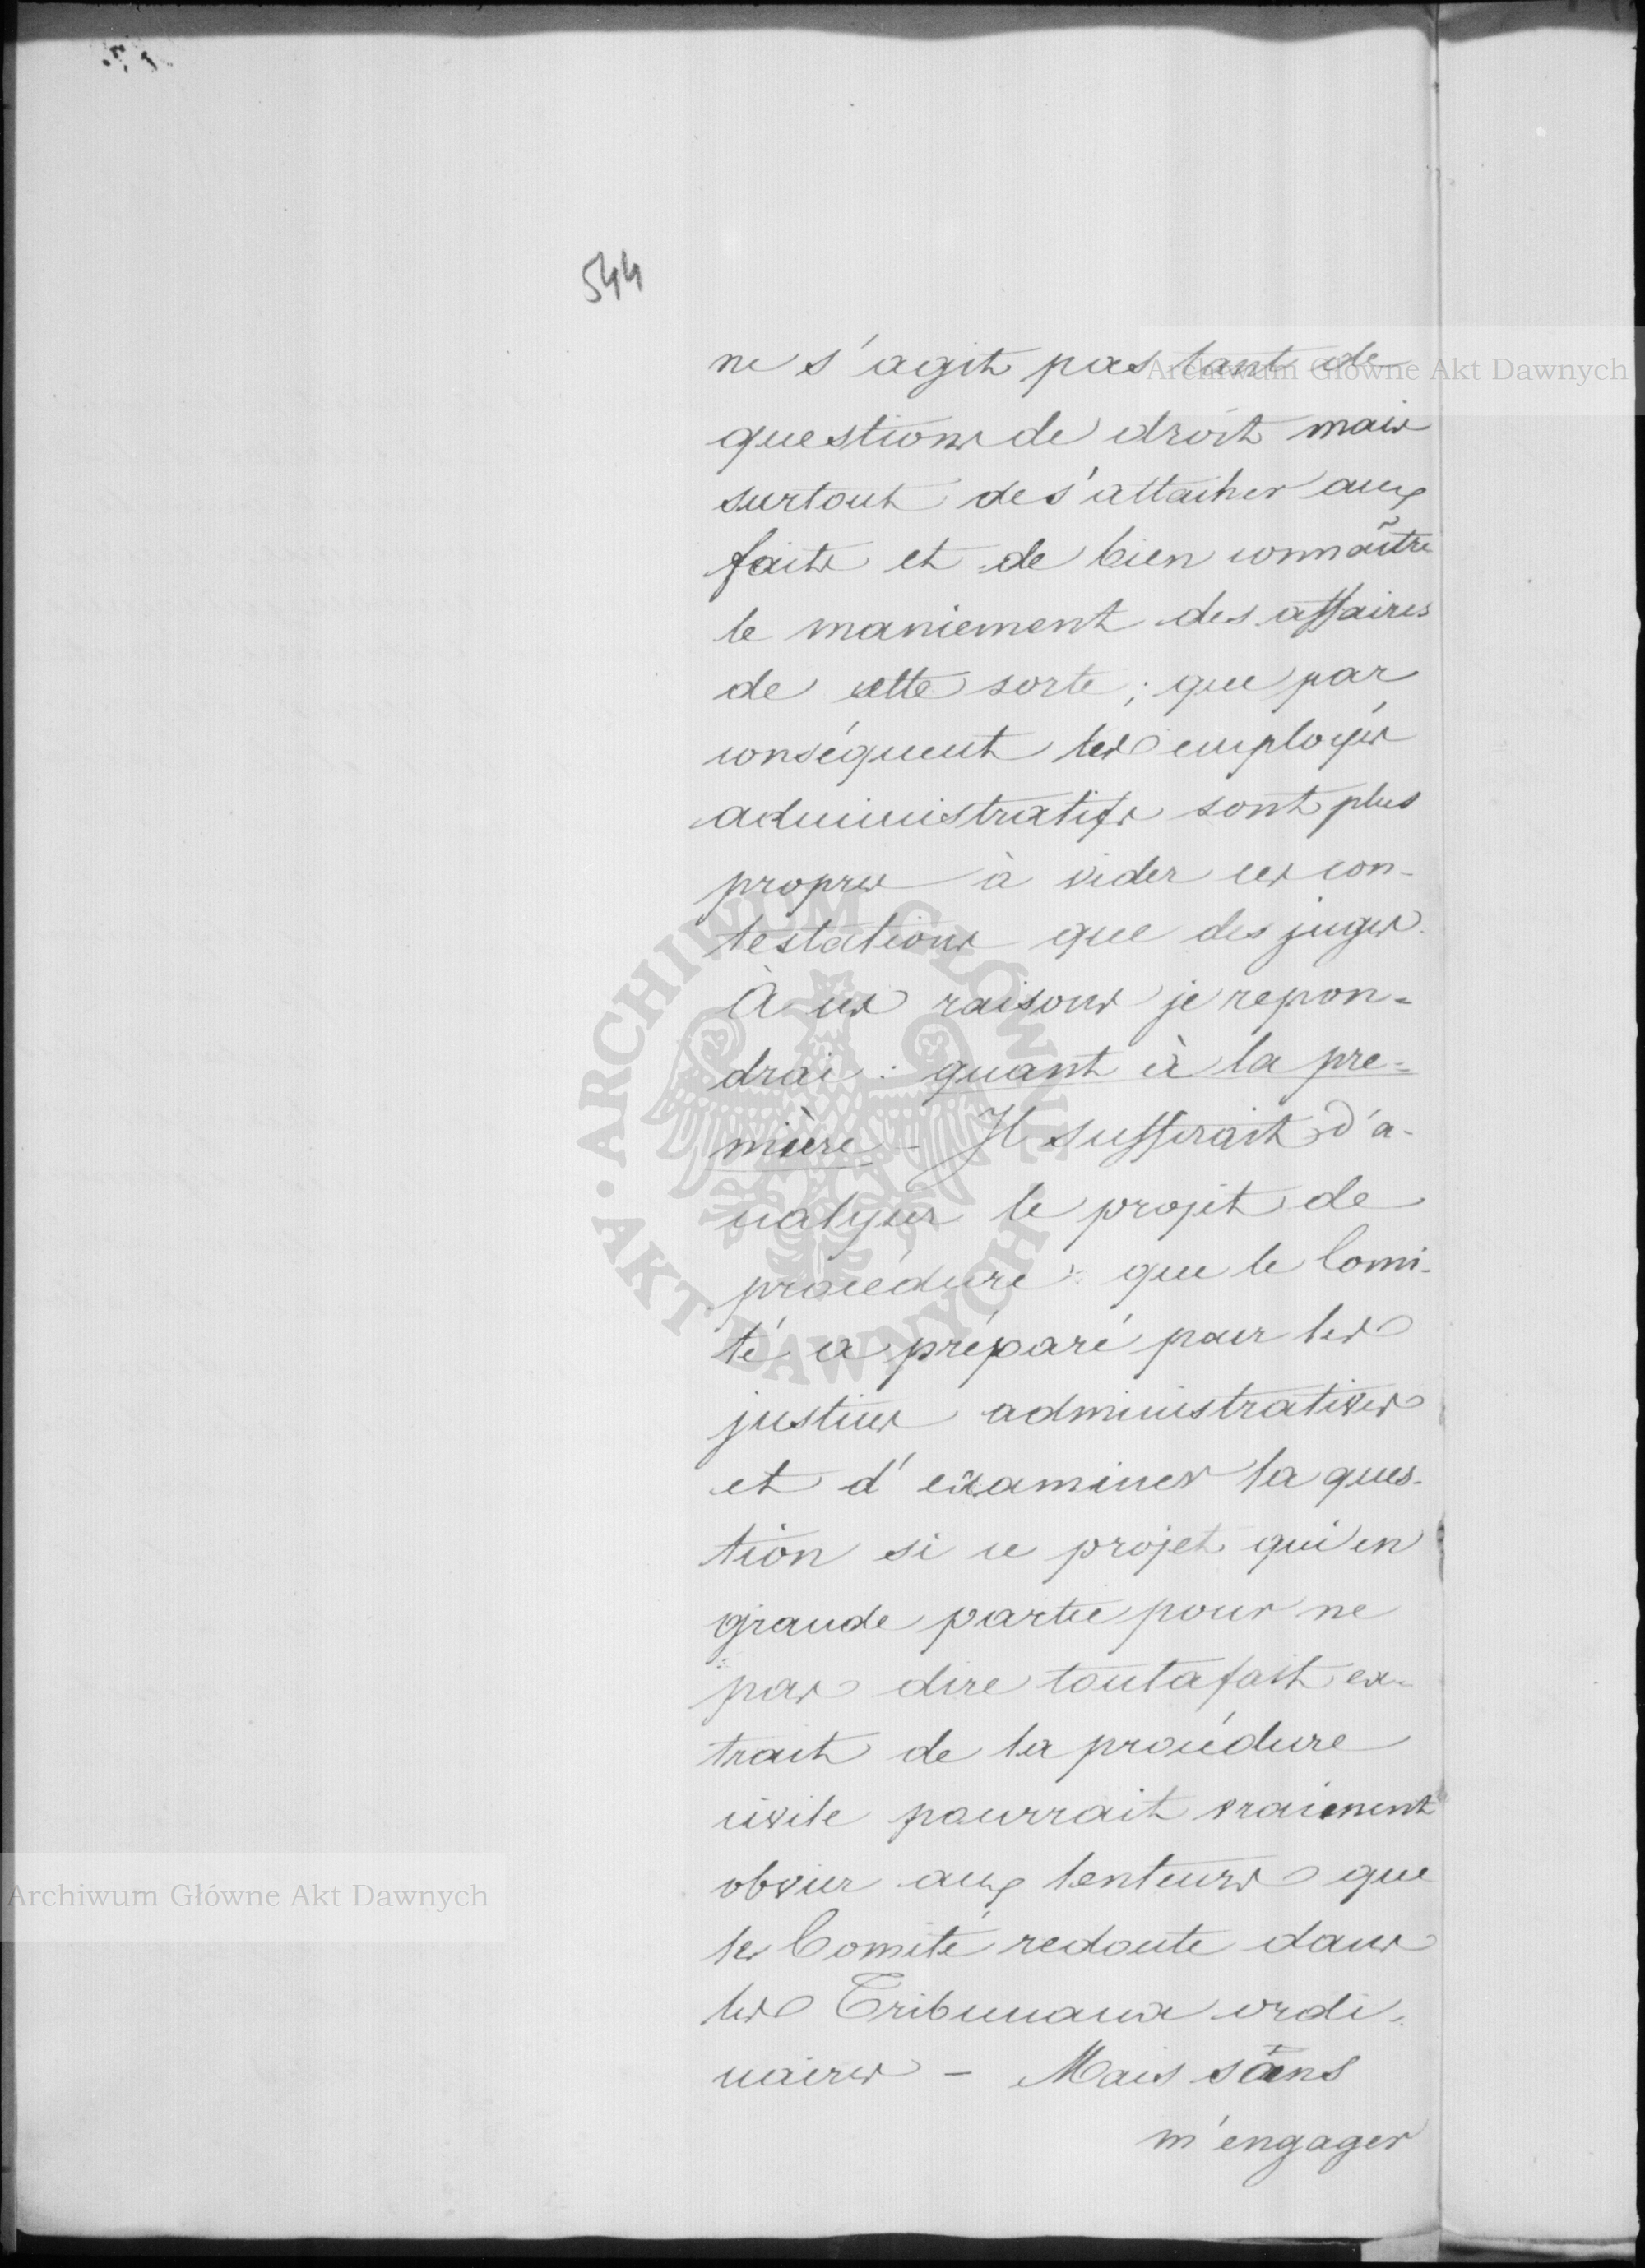 544
ne s'agit pas tant de
questions de droit mais
surtout de s'attacher aux
faits et de bien connaître
le maniement des affaires
de cette sorte; que par
conséquent les employés
administratifs sont plus
propres à vider ces con-
testations que des juges.
À ces raisons je repon-
drai: quant à la pre-
mière – Il suffirait d'a-
nalyser le projet de
procédure que le Comi-
té a préparé pour les
justices administratives
et d'examiner la ques-
tion si ce projet qui en
grande partie pour ne
pas dire toutafait ex-
trait de la procédure
civile pourrait vraiement
obvier aux lenteurs que
le Comité redoute dans
les Tribunaux ordi-
naires – Mais sans
m'engager
Archiwum Główne Akt Dawnych
Archiwum Główne Akt Dawnych
ARCHIWUM GŁÓWNE • AKT DAWNYCH •